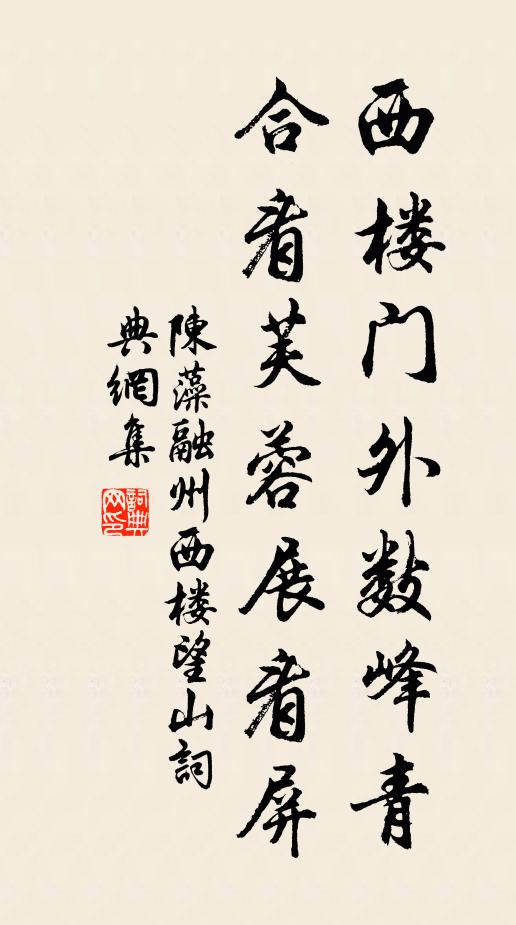 西楼门外数峰青
合者芙蓉展者屏
陳藻融州西楼望山詞
典網集
詞典
网印